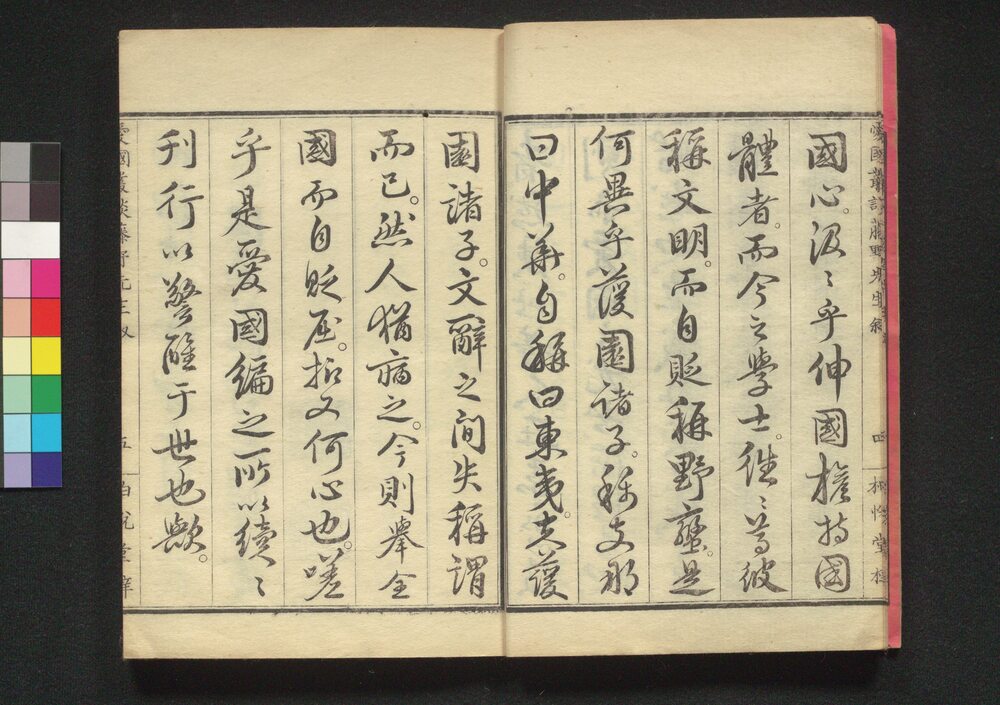 國心。汲〻乎伸國權持國
體者。而今之學士。往〻尊彼
稱文明。而自貶稱野蠻。是
何異乎蘐園諸子。稱支那
曰中華。自稱曰東夷。夫蘐
園諸子。文辭之間失稱謂
而已。然人猶病之。今則擧全
國而自貶屈。抑又何心也。嗟
乎是愛國編之所以續〻
刊行以警醒于世也歟。
愛國叢談藤野先生叙
四
愛國叢談藤野先生叙
五